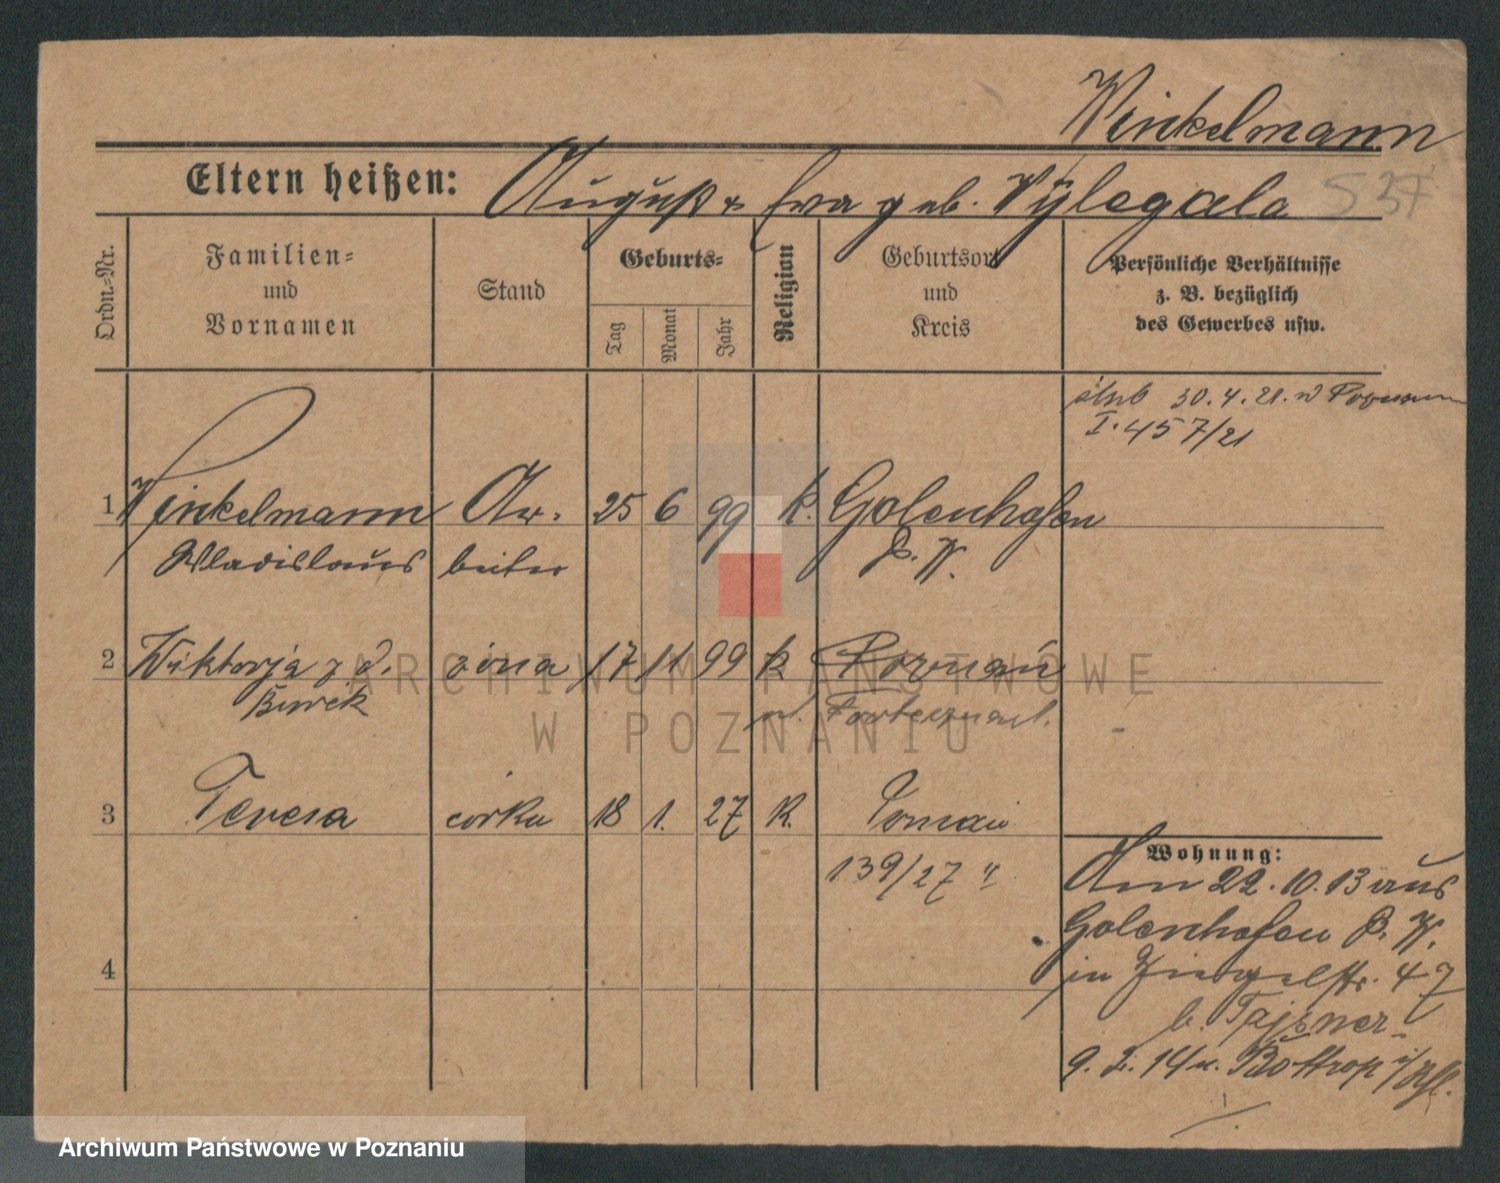 Winkelmann
Eltern heißen: August & Eva geb. Wylegala
S 37
Ordn.-Nr.
Familien-
und
Vornamen
Stand
Geburts-
Tag
Monat
Jahr
Religion
Geburtsort
und
Kreis
Persönliche Verhältnisse
z. B. bezüglich
des Gewerbes usw.
ślub 30.4.21. w
I. 457/21
1 Winkelmann Ar- 25 6 99 k. Golenhofen
Wladislaus beiter P. W.
2 Wiktorja z d. żona 17 11 99 k Poznań
3 Teresa córka 18 1. 27 k. Poznań
139/27
4
Wohnung:
Am 22.10.13 aus
Golenhofen P. W.
in Ziegelstr. 47
b. Tajsner
9. 2. 14 n. Bottrop i/
ARCHIWUM PAŃSTWOWE
W POZNANIU
Archiwum Państwowe w Poznaniu